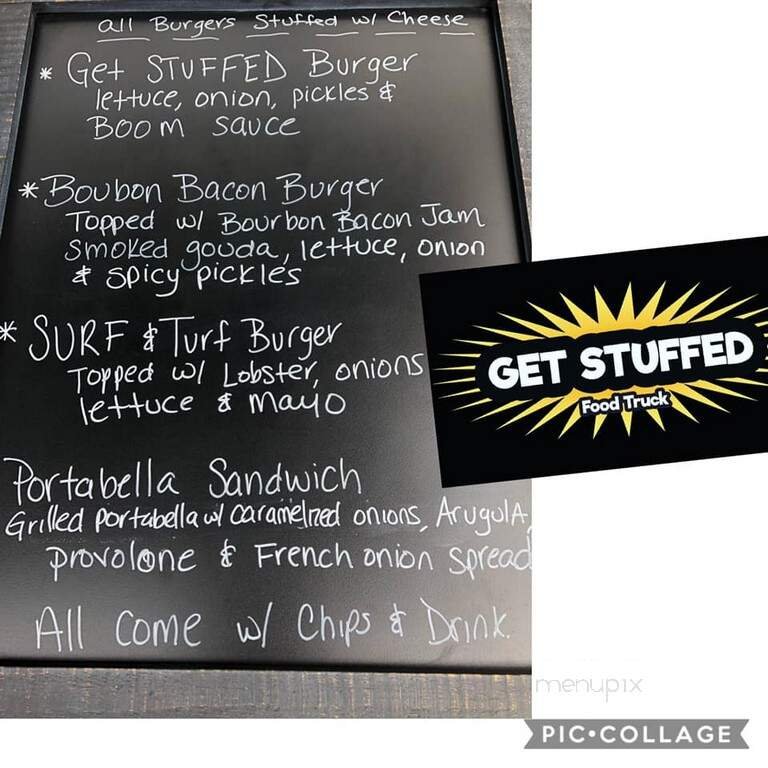 all Burgers Stuffed w/ Cheese
* Get STUFFED Burger
lettuce, onion, pickles &
BOOM sauce
* Boubon Bacon Burger
Topped w/ Bourbon Bacon Jam
smoked gouda, lettuce, onion
& spicy pickles
* SURF & Turf Burger
Topped w/ Lobster, onions
lettuce & mayo
Portabella Sandwich
Grilled portabella w/ caramelnzed onions, ArugulA,
provolone & French onion spread
All come w/ Chips & Drink.
GET STUFFED
Food Truck
menupix
PIC•COLLAGE